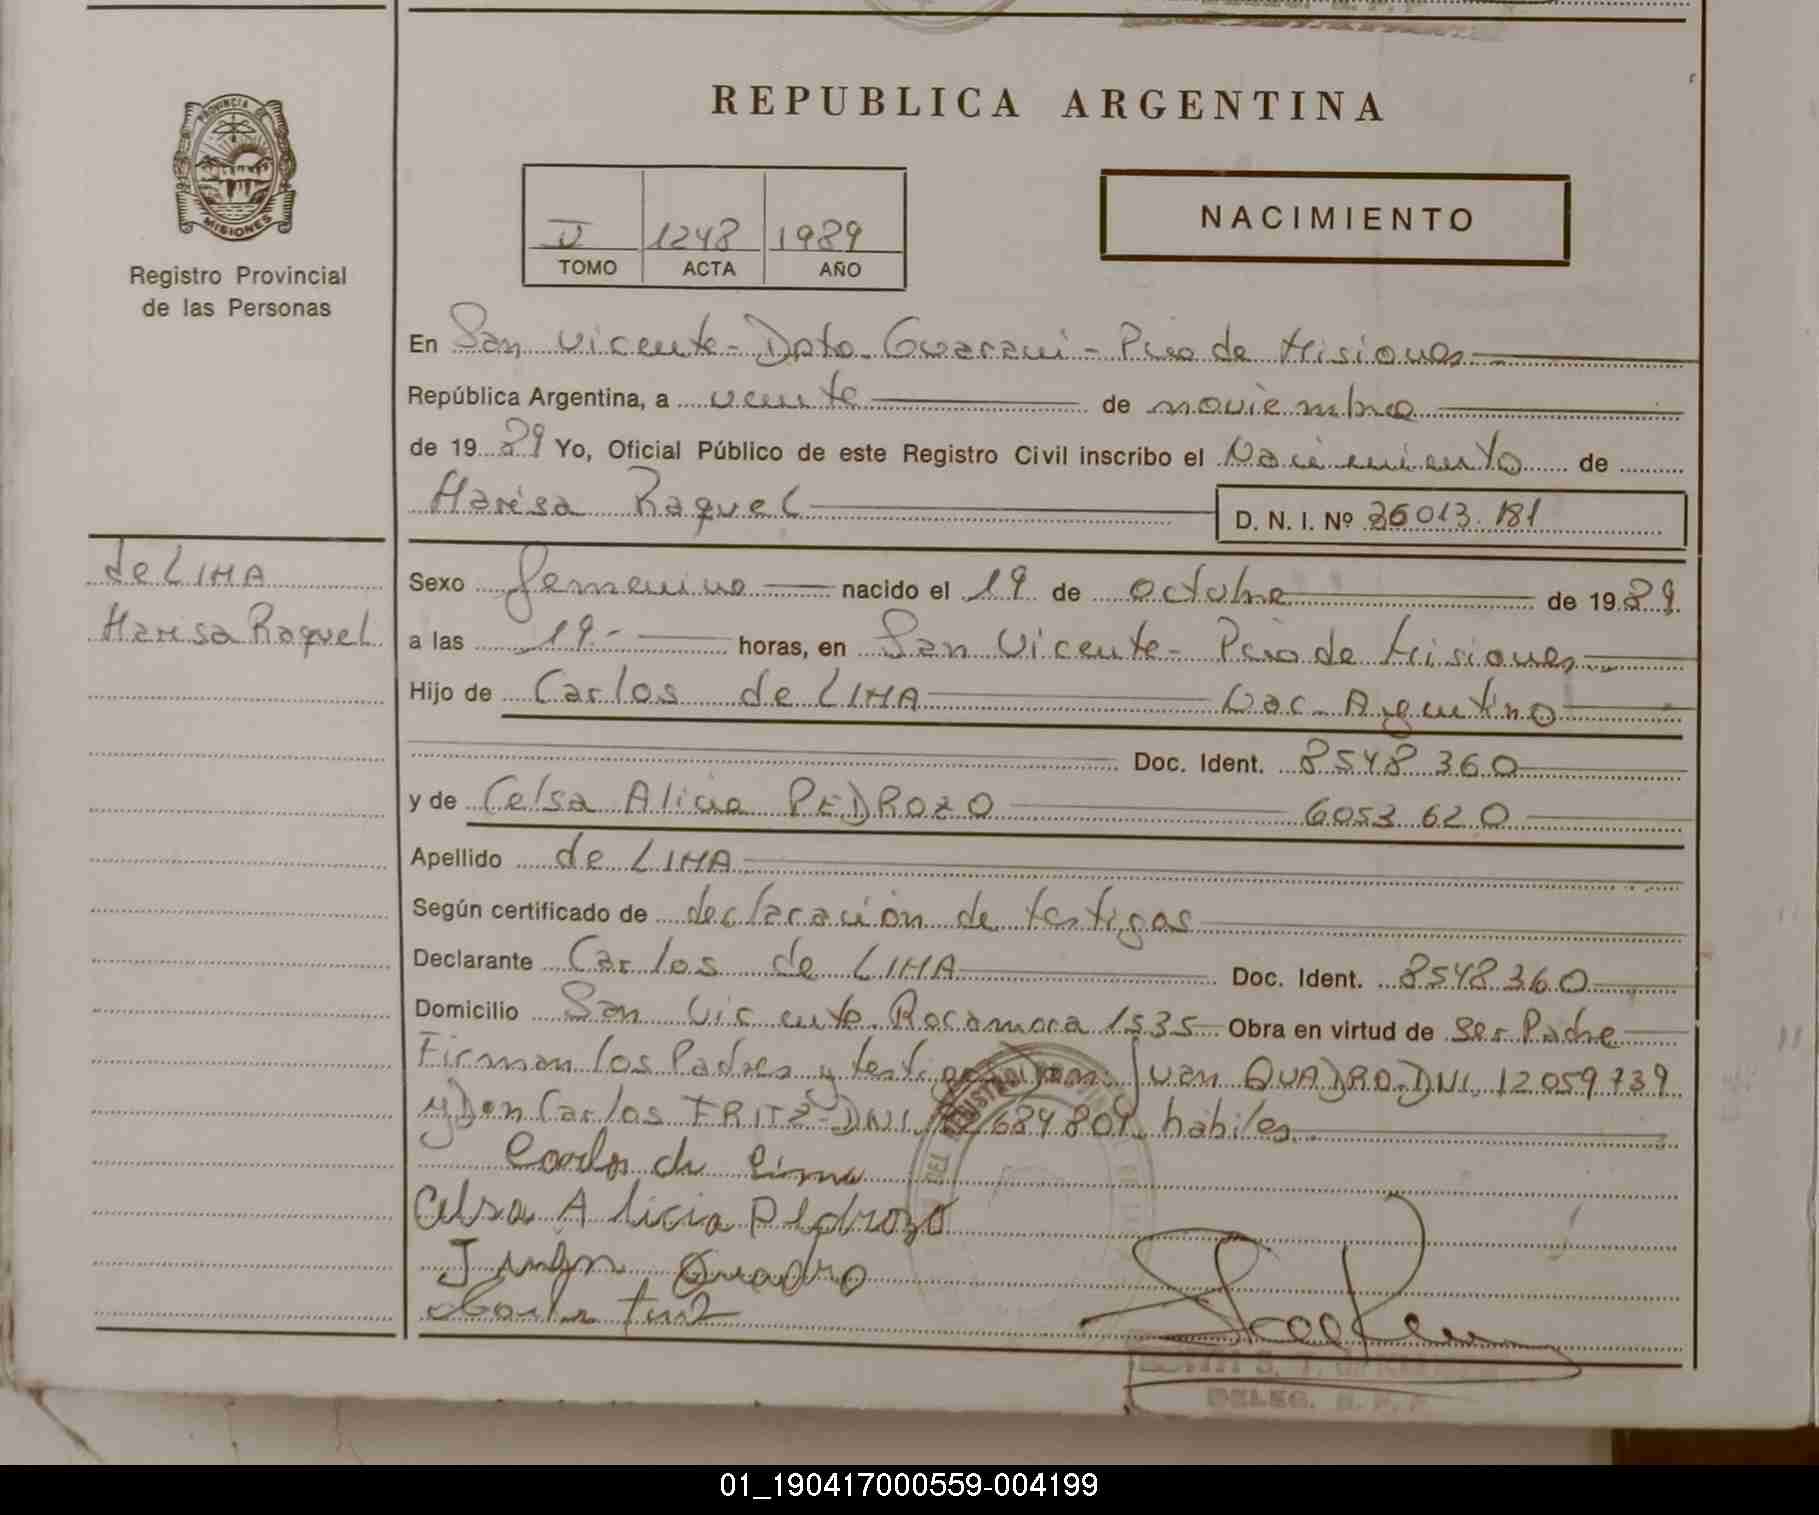 REPUBLICA ARGENTINA
PROVINCIA DE
MISIONES
Registro Provincial
de las Personas
1248 1989
TOMO ACTA AÑO
NACIMIENTO
En San Vicente - Dpto. Guarani - Pcia de Misiones
República Argentina, a veinte de noviembre
de 1989 Yo, Oficial Público de este Registro Civil inscribo el Nacimiento de
Marisa Raquel
D. N. I. Nº 26013.181
de LIMA
Marisa Raquel
Sexo femenino nacido el 19 de octubre de 1989
a las 19.- horas, en San Vicente - Pcia de Misiones
Hijo de Carlos de LIMA Nac. Argentino
Doc. Ident. 8548360
y de Celsa Alicia PEDROZO 6053620
Apellido de LIMA
Según certificado de declaración de testigos
Declarante Carlos de LIMA Doc. Ident. 8548360
Domicilio San Vicente. Rocamora 1535 Obra en virtud de Ser Padre
Firman los Padres y testigos Juan QUADRO. DNI. 12059739
y Don Carlos FRITZ - DNI. 684804 habiles
Carlos de Lima
Celsa Alicia Pedrozo
Juan Quadro
DELEG. R. P. P.
01_190417000559-004199